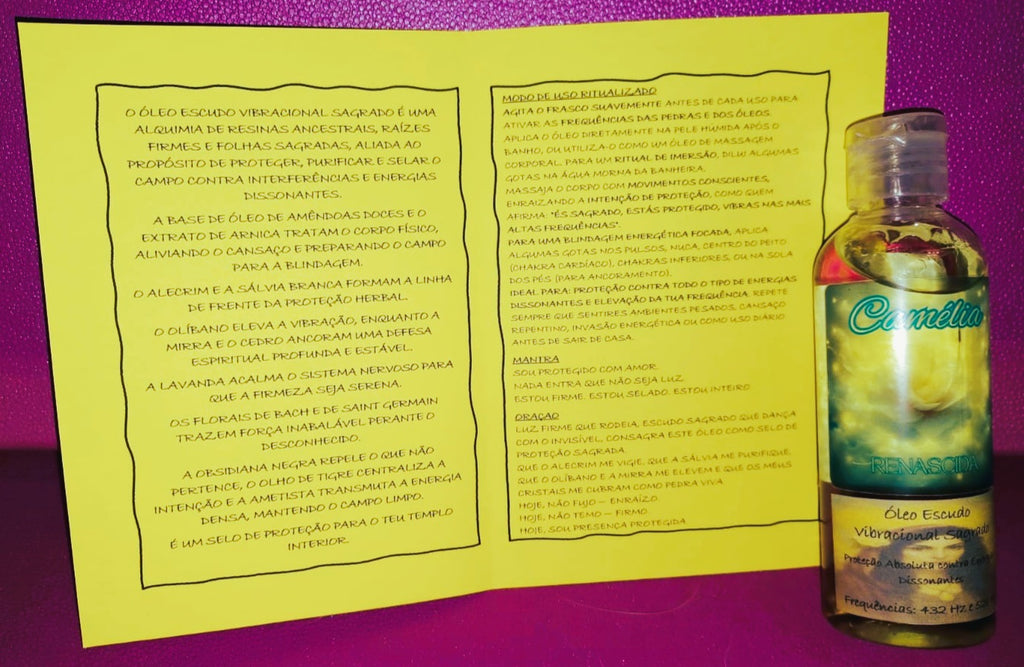 O ÓLEO ESCUDO VIBRACIONAL SAGRADO É UMA
ALQUIMIA DE RESINAS ANCESTRAIS, RAÍZES
FIRMES E FOLHAS SAGRADAS, ALIADA AO
PROPÓSITO DE PROTEGER, PURIFICAR E SELAR O
CAMPO CONTRA INTERFERÊNCIAS E ENERGIAS
DISSONANTES.
A BASE DE ÓLEO DE AMÊNDOAS DOCES E O
EXTRATO DE ARNICA TRATAM O CORPO FÍSICO,
ALIVIANDO O CANSAÇO E PREPARANDO O CAMPO
PARA A BLINDAGEM.
O ALECRIM E A SÁLVIA BRANCA FORMAM A LINHA
DE FRENTE DA PROTEÇÃO HERBAL.
O OLÍBANO ELEVA A VIBRAÇÃO, ENQUANTO A
MIRRA E O CEDRO ANCORAM UMA DEFESA
ESPIRITUAL PROFUNDA E ESTÁVEL.
A LAVANDA ACALMA O SISTEMA NERVOSO PARA
QUE A FIRMEZA SEJA SERENA.
OS FLORAIS DE BACH E DE SAINT GERMAIN
TRAZEM FORÇA INABALÁVEL PERANTE O
DESCONHECIDO.
A OBSIDIANA NEGRA REPELE O QUE NÃO
PERTENCE, O OLHO DE TIGRE CENTRALIZA A
INTENÇÃO E A AMETISTA TRANSMUTA A ENERGIA
DENSA, MANTENDO O CAMPO LIMPO.
É UM SELO DE PROTEÇÃO PARA O TEU TEMPLO
INTERIOR.
MODO DE USO RITUALIZADO
AGITA O FRASCO SUAVEMENTE ANTES DE CADA USO PARA
ATIVAR AS FREQUÊNCIAS DAS PEDRAS E DOS ÓLEOS.
APLICA O ÓLEO DIRETAMENTE NA PELE HÚMIDA APÓS O
BANHO, OU UTILIZA-O COMO UM ÓLEO DE MASSAGEM
CORPORAL. PARA UM RITUAL DE IMERSÃO, DILUI ALGUMAS
GOTAS NA ÁGUA MORNA DA BANHEIRA.
MASSAJA O CORPO COM MOVIMENTOS CONSCIENTES,
ENRAIZANDO A INTENÇÃO DE PROTEÇÃO, COMO QUEM
AFIRMA: "ÉS SAGRADO, ESTÁS PROTEGIDO, VIBRAS NAS MAIS
ALTAS FREQUÊNCIAS".
PARA UMA BLINDAGEM ENERGÉTICA FOCADA, APLICA
ALGUMAS GOTAS NOS PULSOS, NUCA, CENTRO DO PEITO
(CHAKRA CARDÍACO), CHAKRAS INFERIORES, OU NA SOLA
DOS PÉS (PARA ANCORAMENTO).
IDEAL PARA: PROTEÇÃO CONTRA TODO O TIPO DE ENERGIAS
DISSONANTES E ELEVAÇÃO DA TUA FREQUÊNCIA. REPETE
SEMPRE QUE SENTIRES AMBIENTES PESADOS, CANSAÇO
REPENTINO, INVASÃO ENERGÉTICA OU COMO USO DIÁRIO
ANTES DE SAIR DE CASA.
MANTRA
SOU PROTEGIDO COM AMOR.
NADA ENTRA QUE NÃO SEJA LUZ.
ESTOU FIRME. ESTOU SELADO. ESTOU INTEIRO
ORAÇÃO
LUZ FIRME QUE RODEIA, ESCUDO SAGRADO QUE DANÇA
COM O INVISÍVEL, CONSAGRA ESTE ÓLEO COMO SELO DE
PROTEÇÃO SAGRADA.
QUE O ALECRIM ME VIGIE, QUE A SÁLVIA ME PURIFIQUE,
QUE O OLÍBANO E A MIRRA ME ELEVEM E QUE OS MEUS
CRISTAIS ME CUBRAM COMO PEDRA VIVA
HOJE, NÃO FUJO — ENRAÍZO.
HOJE, NÃO TEMO — FIRMO.
HOJE, SOU PRESENÇA PROTEGIDA
Camélia
RENASCIDA
Óleo Escudo
Vibracional Sagrado
Proteção Absoluta contra
Dissonantes
Frequências: 432 Hz e